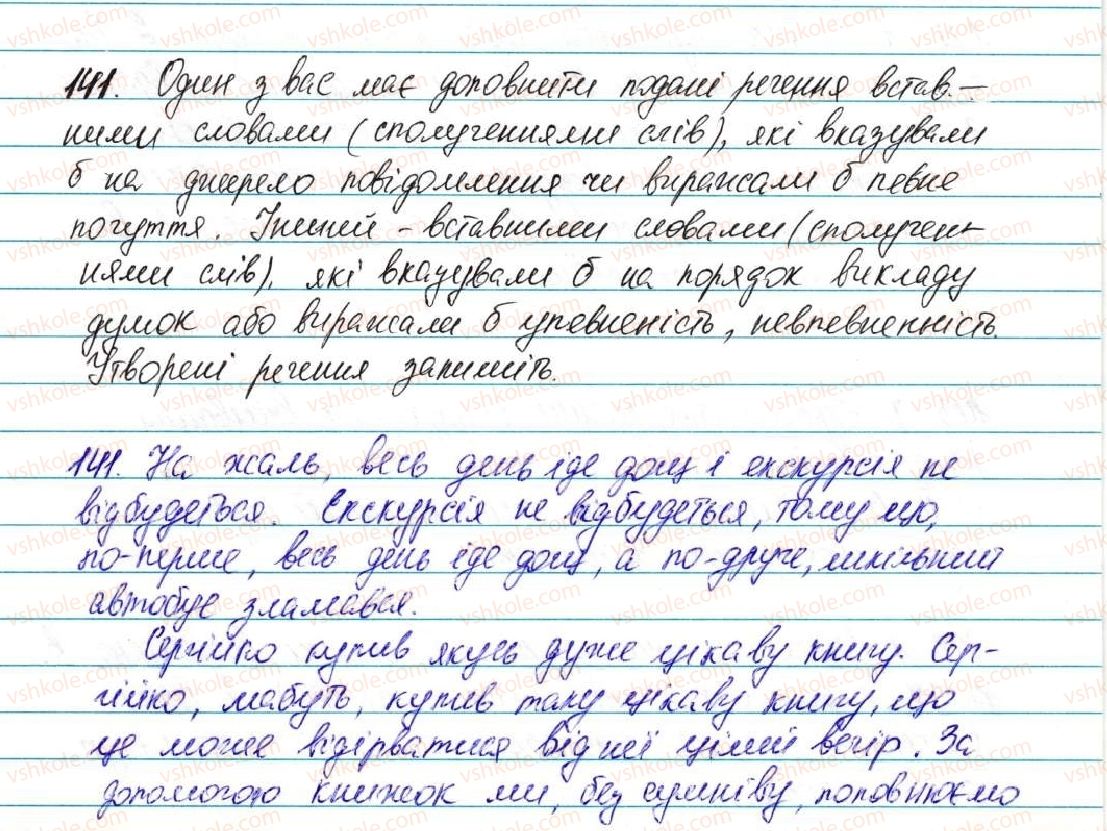 141. Один з вас має доповнити подані речення встав.-
ними словами (сполученнями слів), які вказували
б на джерело повідомлення чи виражали б певне
почуття. Інший - вставними словами (сполучен-
нями слів), які вказували б на порядок викладу
думок або виражали б упевненість, невпевненність.
Утворені речення запишіть.
141. На жаль, весь день іде дощ і екскурсія не
відбудеться. Екскурсія не відбудеться, тому що,
по-перше, весь день іде дощ, а по-друге, шкільний
автобус зламався.
Сергійко купив якусь дуже цікаву книгу. Сер-
гійко, мабуть, купив таку цікаву книгу, що
не може відірватися від неї цілий вечір. За
допомогою книжок ми, без сумніву, поповнюємо
vshkole.com